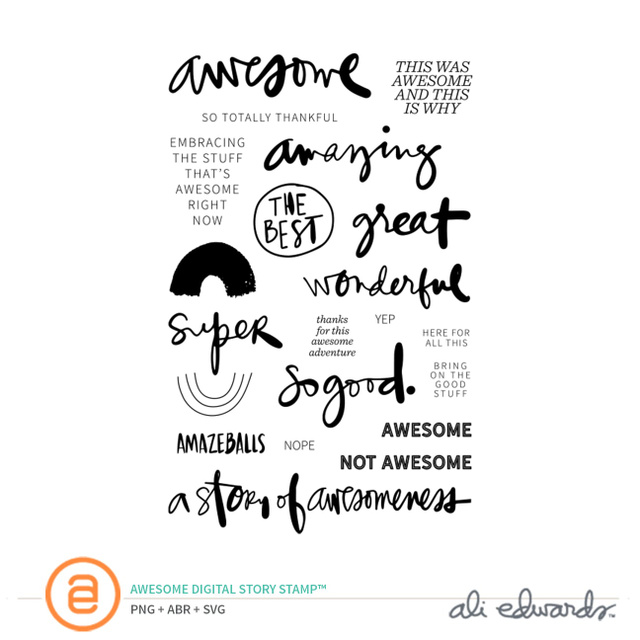 awesome
THIS WAS
AWESOME
AND THIS
IS WHY
SO TOTALLY THANKFUL
EMBRACING
THE STUFF
THAT'S
AWESOME
RIGHT
NOW
amazing
THE
BEST
great
wonderful
super
thanks
for this
awesome
adventure
YEP
HERE FOR
ALL THIS
so good.
BRING
ON THE
GOOD
STUFF
AWESOME
AMAZEBALLS
NOPE
NOT AWESOME
a story of awesomeness
a
AWESOME DIGITAL STORY STAMP™
PNG + ABR + SVG
ali edwards™